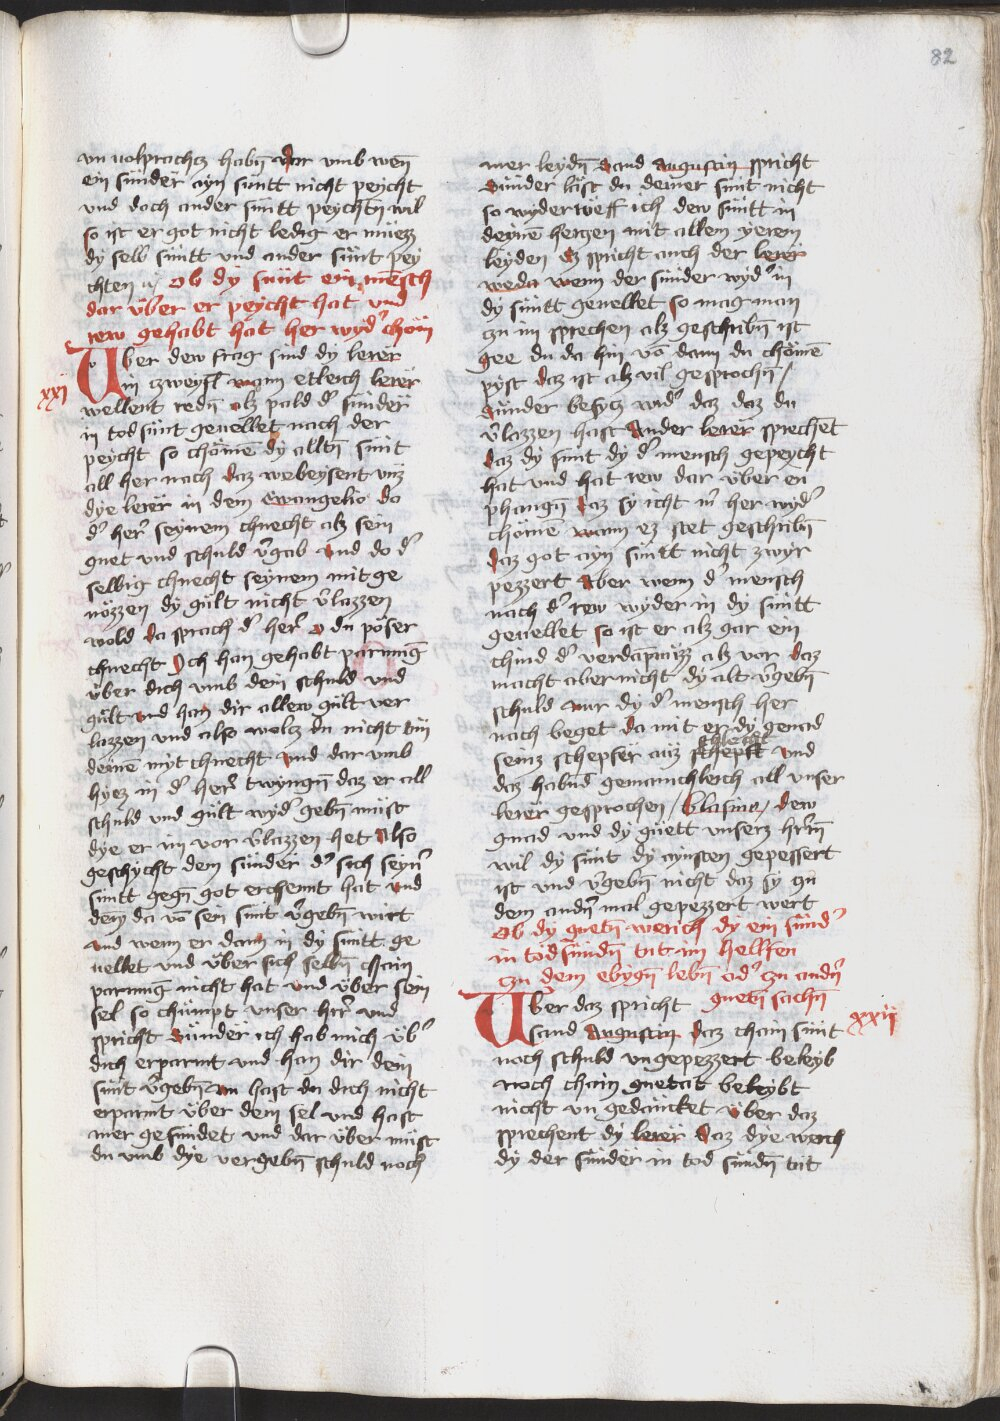 82
vn uolprachtz habn̄ Dar vmb wen̄
ein sünder ayn süntt nicht peycht
vnd doch ander süntt peychtn̄ wil
so ist er got nicht ledig er müezz
dy selb süntt vnd ander sünt pey
chten
Ob dy sünt ein mensch
dar über er peycht hat vnd
rew gehabt hat her wydˀ chöm
xxj
Über dew frag sind dy lerer
in zweyfl wann etleich lerer
wellent redn̄ alz pald dˀ sünder
in tod sünt geuellet nach der
peycht so chömē dy alltn̄ sünt
all her nach Daz webeysent vnz
dye lerer in dem ewangelio do
dˀ herˀ seynem chnecht alz sein
guet vnd schuld v̄gab Vnd do dˀ
selbig chnecht seynem mit ge
nözzen dy gült nicht v̄lazzen
wold Da sprach dˀ herˀ O du pöser
chnecht Ich han gehabt parmūg
über dich vmb dein schuld vnd
gült Vnd han dir allew gült ver
lazzen vnd also wolz du nicht tün
deinē myt chnecht Vnd dar vmb
hyez in dˀ herˀ twyngn̄ daz er all
schuld vnd gült wydˀ gebn̄ müst
dye er im vor v̄lazzen het Also
geschycht dem sünder dˀ sich seynˀ
süntt gegn̄ got erchennt hat Vnd
dem da vō sein sünt v̄gebn̄ wirt
Vnd wenn er dann in dy süntt ge
uellet vnd über sich selbn̄ chain
parmūg nicht hat Vnd über sein
sel so chümpt vnser herˀ vnd
spricht Sünder ich hab mich übˀ
dich erparmt vnd han dir dein
sünt v̄gebn̄ Nu hast du dich nicht
erparmt über dein sel vnd hast
mer gesündet vnd dar über müst
du vmb dye vergebn̄ schuld noch
mer leydn̄ Sand Augustin spricht
Sünder läst du deiner sünt nicht
so wyder wëff ich dew süntt in
deynē hertzen mit allem yerem
leyden Ez spricht auch der lerer
weda wenn der sünder wydˀ in
dy süntt geuellet so mag man
zu im sprechen alz geschribn̄ ist
gee du da hin vō dann du chömē
pyst daz ist alz vil gesprochn̄ /
Sünder besytz widˀ daz daz du
v̄lazzen hast Ander lerer sprechēt
Daz dy sünt dy dˀ mensch gepeycht
hat vnd hat rew dar über en
phangn̄ Daz sy icht mˀ her wydˀ
chömē wann ez stet geschribn̄
Daz got ayn süntt nicht zwyr
pezzert Aber wenn dˀ mensch
nach dˀ rew wyder in dy süntt
geuellet so ist er alz gar ein
chind dˀ verdāpnüzz alz vor Daz
macht aber nicht dy alt v̄gebn̄
schuld Nur dy dˀ mensch her
nach beget Da mit er dy genad
seinz schepfer auz schlecht vnd
daz habnd gemainchleich all vnser
lerer gesprochen / Glasma / dew
gnad vnd dy güett vnserz hrˀn̄
wil dy sünt dy aynsten gepessert
ist vnd v̄gebn̄ nicht daz sy zu
dem andˀn mal gepezzert wert
Ob dy guetn̄ werich dy ein sündˀ
in tod sündn̄ tüt im hellfen
zu dem ebygn̄ lebn̄ odˀ zu andˀn
guetn̄ sachn̄
xxij
Über daz spricht
sand Augustin Daz chain sünt
noch schuld vngepezzert beleyb
Noch chain guetat beleybt
nicht vn gedäncket Über daz
sprechent dy lerer Daz dye werch
dy der sünder in tod sündn̄ tüt